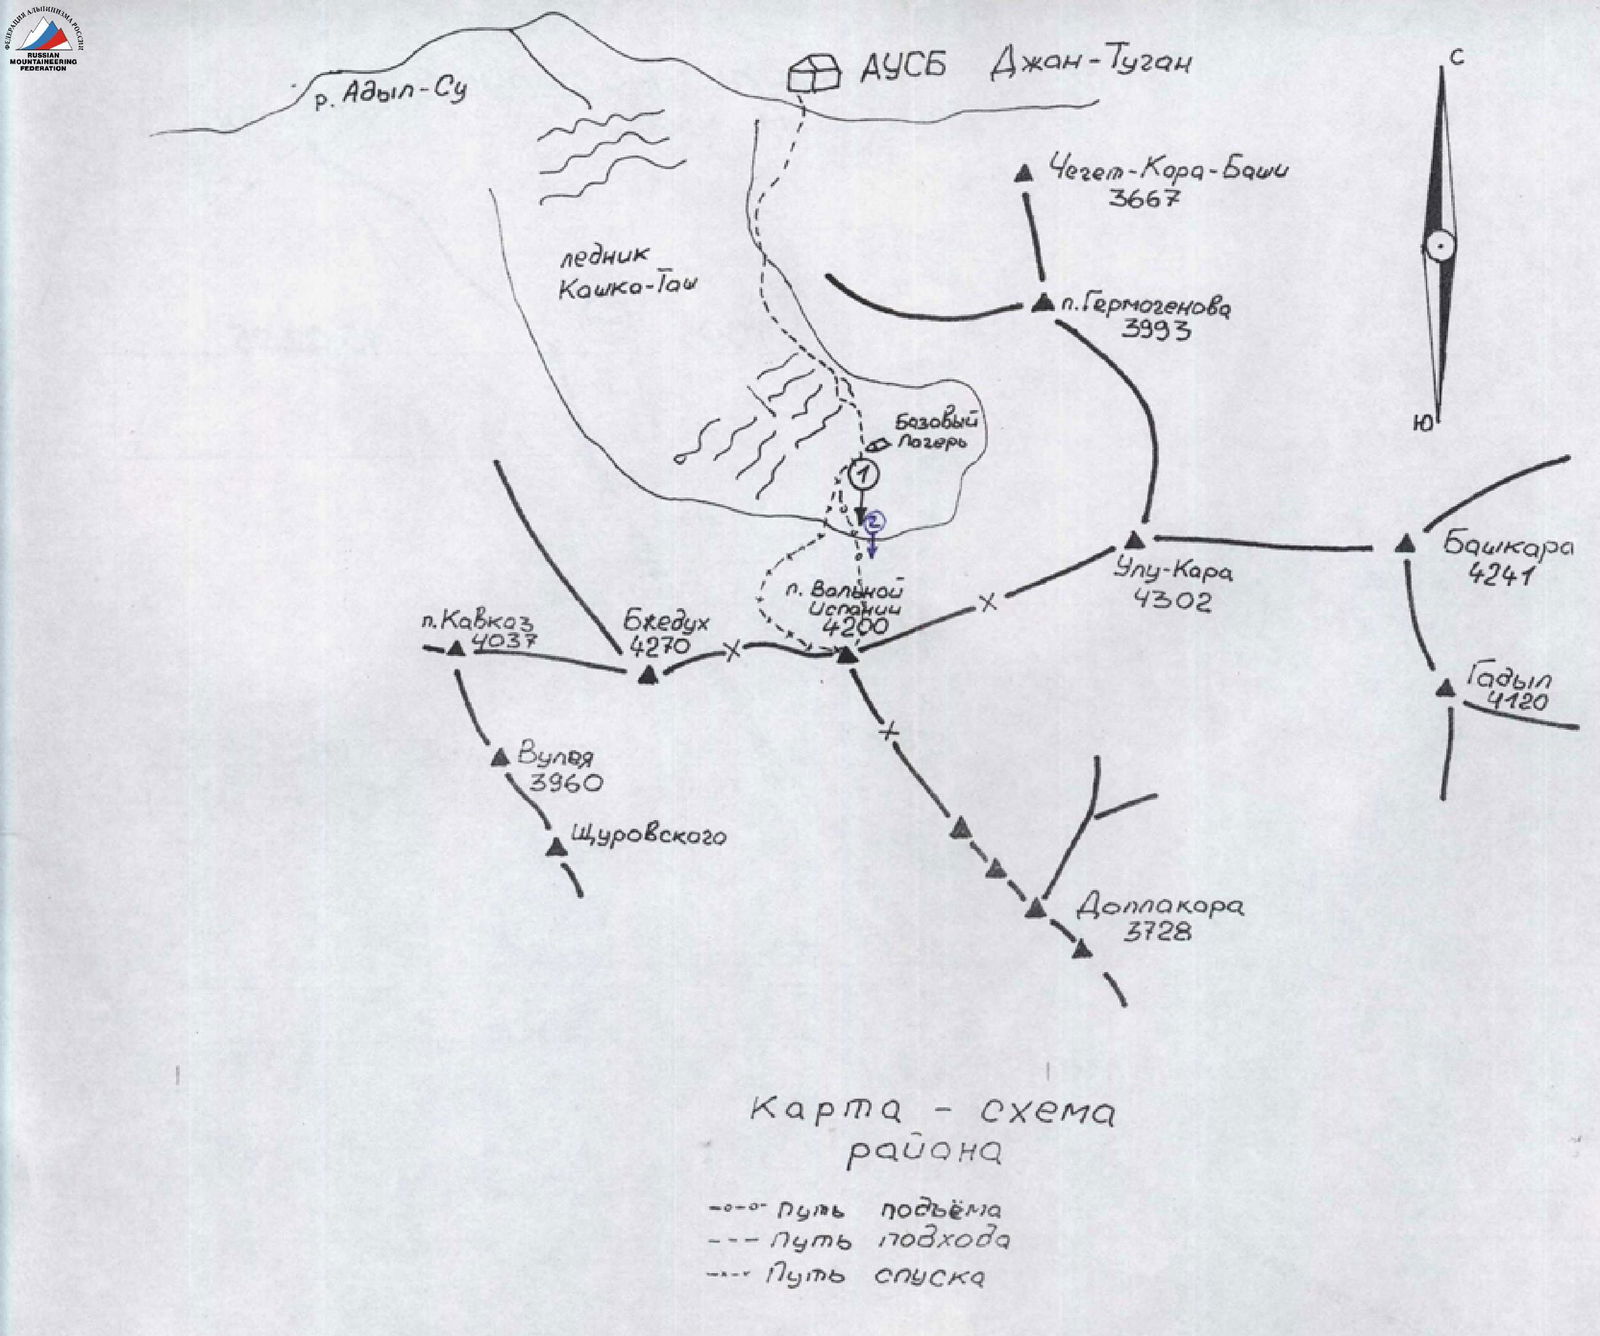 ФЕДЕРАЦИЯ АЛЬПИНИЗМА РОССИИ
RUSSIAN
MOUNTAINEERING
FEDERATION
АУСБ Джан-Туган
р. Адыл-Су
С
Чегет-Кара-Баши
3667
ледник
Кашка-Таш
п.Гермогенова
3993
Ю
Базовый
Лагерь
1
2
Башкара
4241
Улу-Кара
4302
п. Вольной
Испании
4200
п.Кавказ
4037
Бжедух
4270
Гадыл
4120
Вулея
3960
Щуровского
Доллакора
3728
Карта - схема
района
Путь подъёма
Путь подхода
Путь спуска